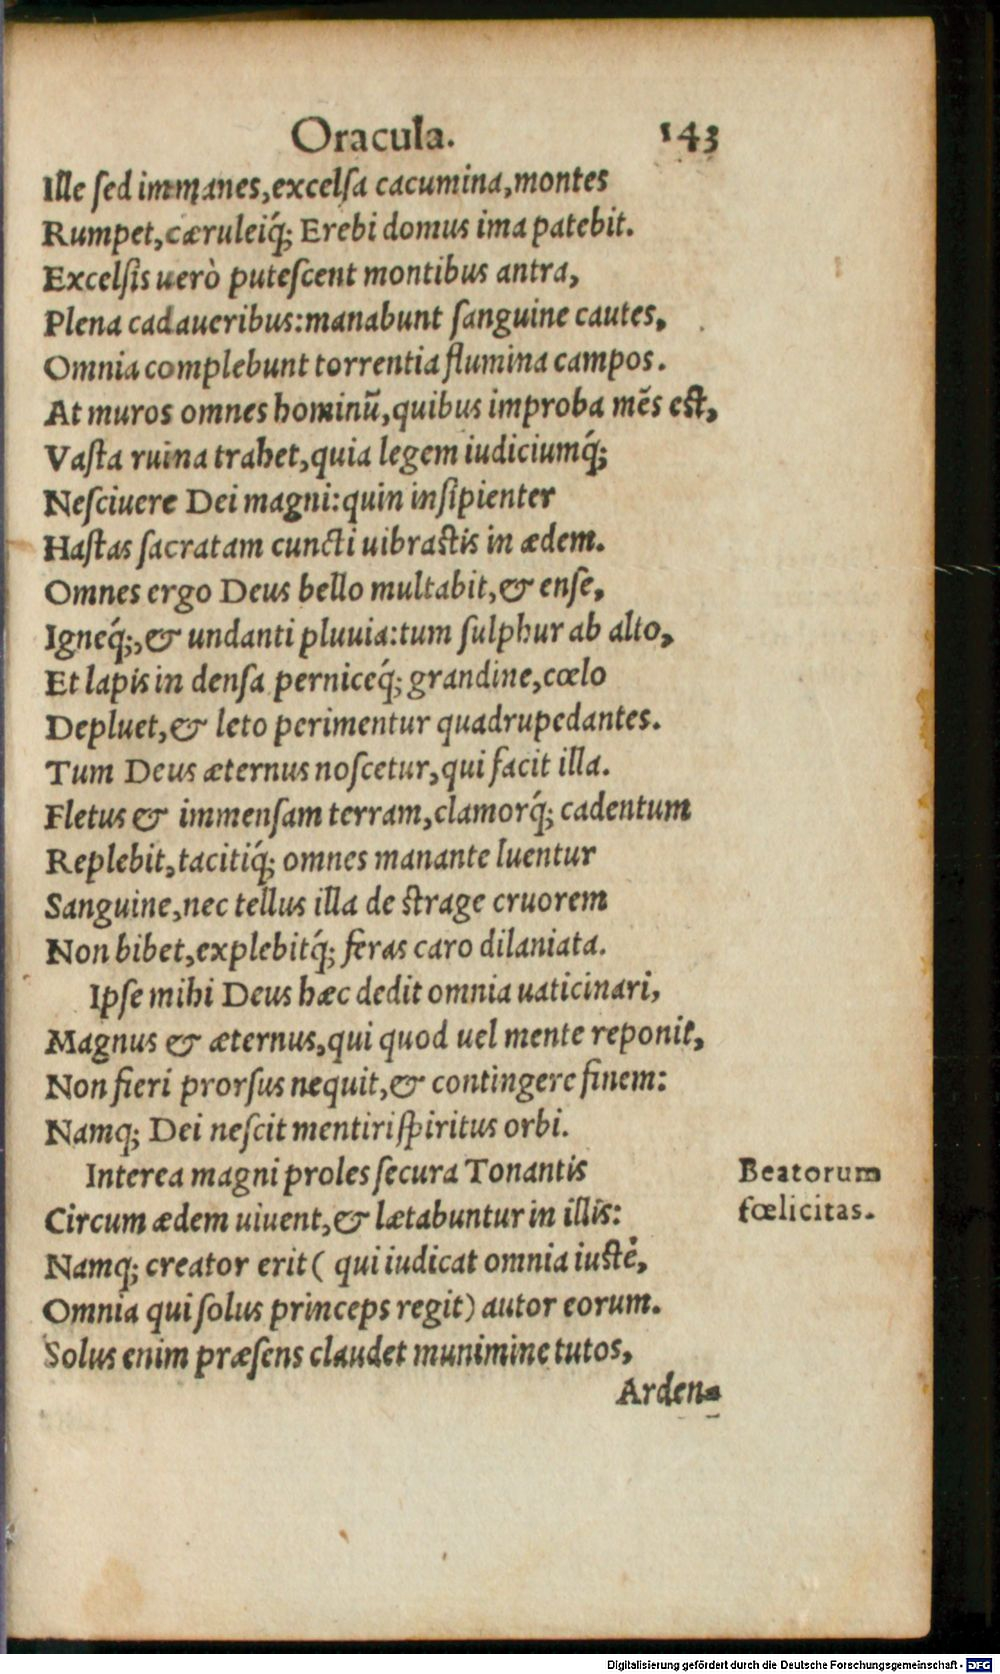 Oracula. 143
Ille sed immanes,excelsa cacumina,montes
Rumpet,cæruleiq́; Erebi domus ima patebit.
Excelsis uerò putescent montibus antra,
Plena cadaueribus:manabunt sanguine cautes,
Omnia complebunt torrentia flumina campos.
At muros omnes hominũ,quibus improba mẽs est,
Vasta ruina trahet,quia legem iudiciumq́;
Nesciuere Dei magni:quin insipienter
Hastas sacratam cuncti uibrastis in ædem.
Omnes ergo Deus bello multabit,& ense,
Igneq́;,& undanti pluuia:tum sulphur ab alto,
Et lapis in densa perniceq́; grandine,cœlo
Depluet,& leto perimentur quadrupedantes.
Tum Deus æternus noscetur,qui facit illa.
Fletus & immensam terram,clamorq́; cadentum
Replebit,tacitiq́; omnes manante luentur
Sanguine,nec tellus illa de strage cruorem
Non bibet,explebitq́; feras caro dilaniata.
Ipse mihi Deus hæc dedit omnia uaticinari,
Magnus & æternus,qui quod uel mente reponit,
Non fieri prorsus nequit,& contingere finem:
Namq; Dei nescit mentiri spiritus orbi.
Interea magni proles secura Tonantis
Beatorum
fœlicitas.
Circum ædem uiuent,& lætabuntur in illis:
Namq; creator erit ( qui iudicat omnia iustè,
Omnia qui solus princeps regit) autor eorum.
Solus enim præsens claudet munimine tutos,
Arden-
Digitalisierung gefördert durch die Deutsche Forschungsgemeinschaft - DFG